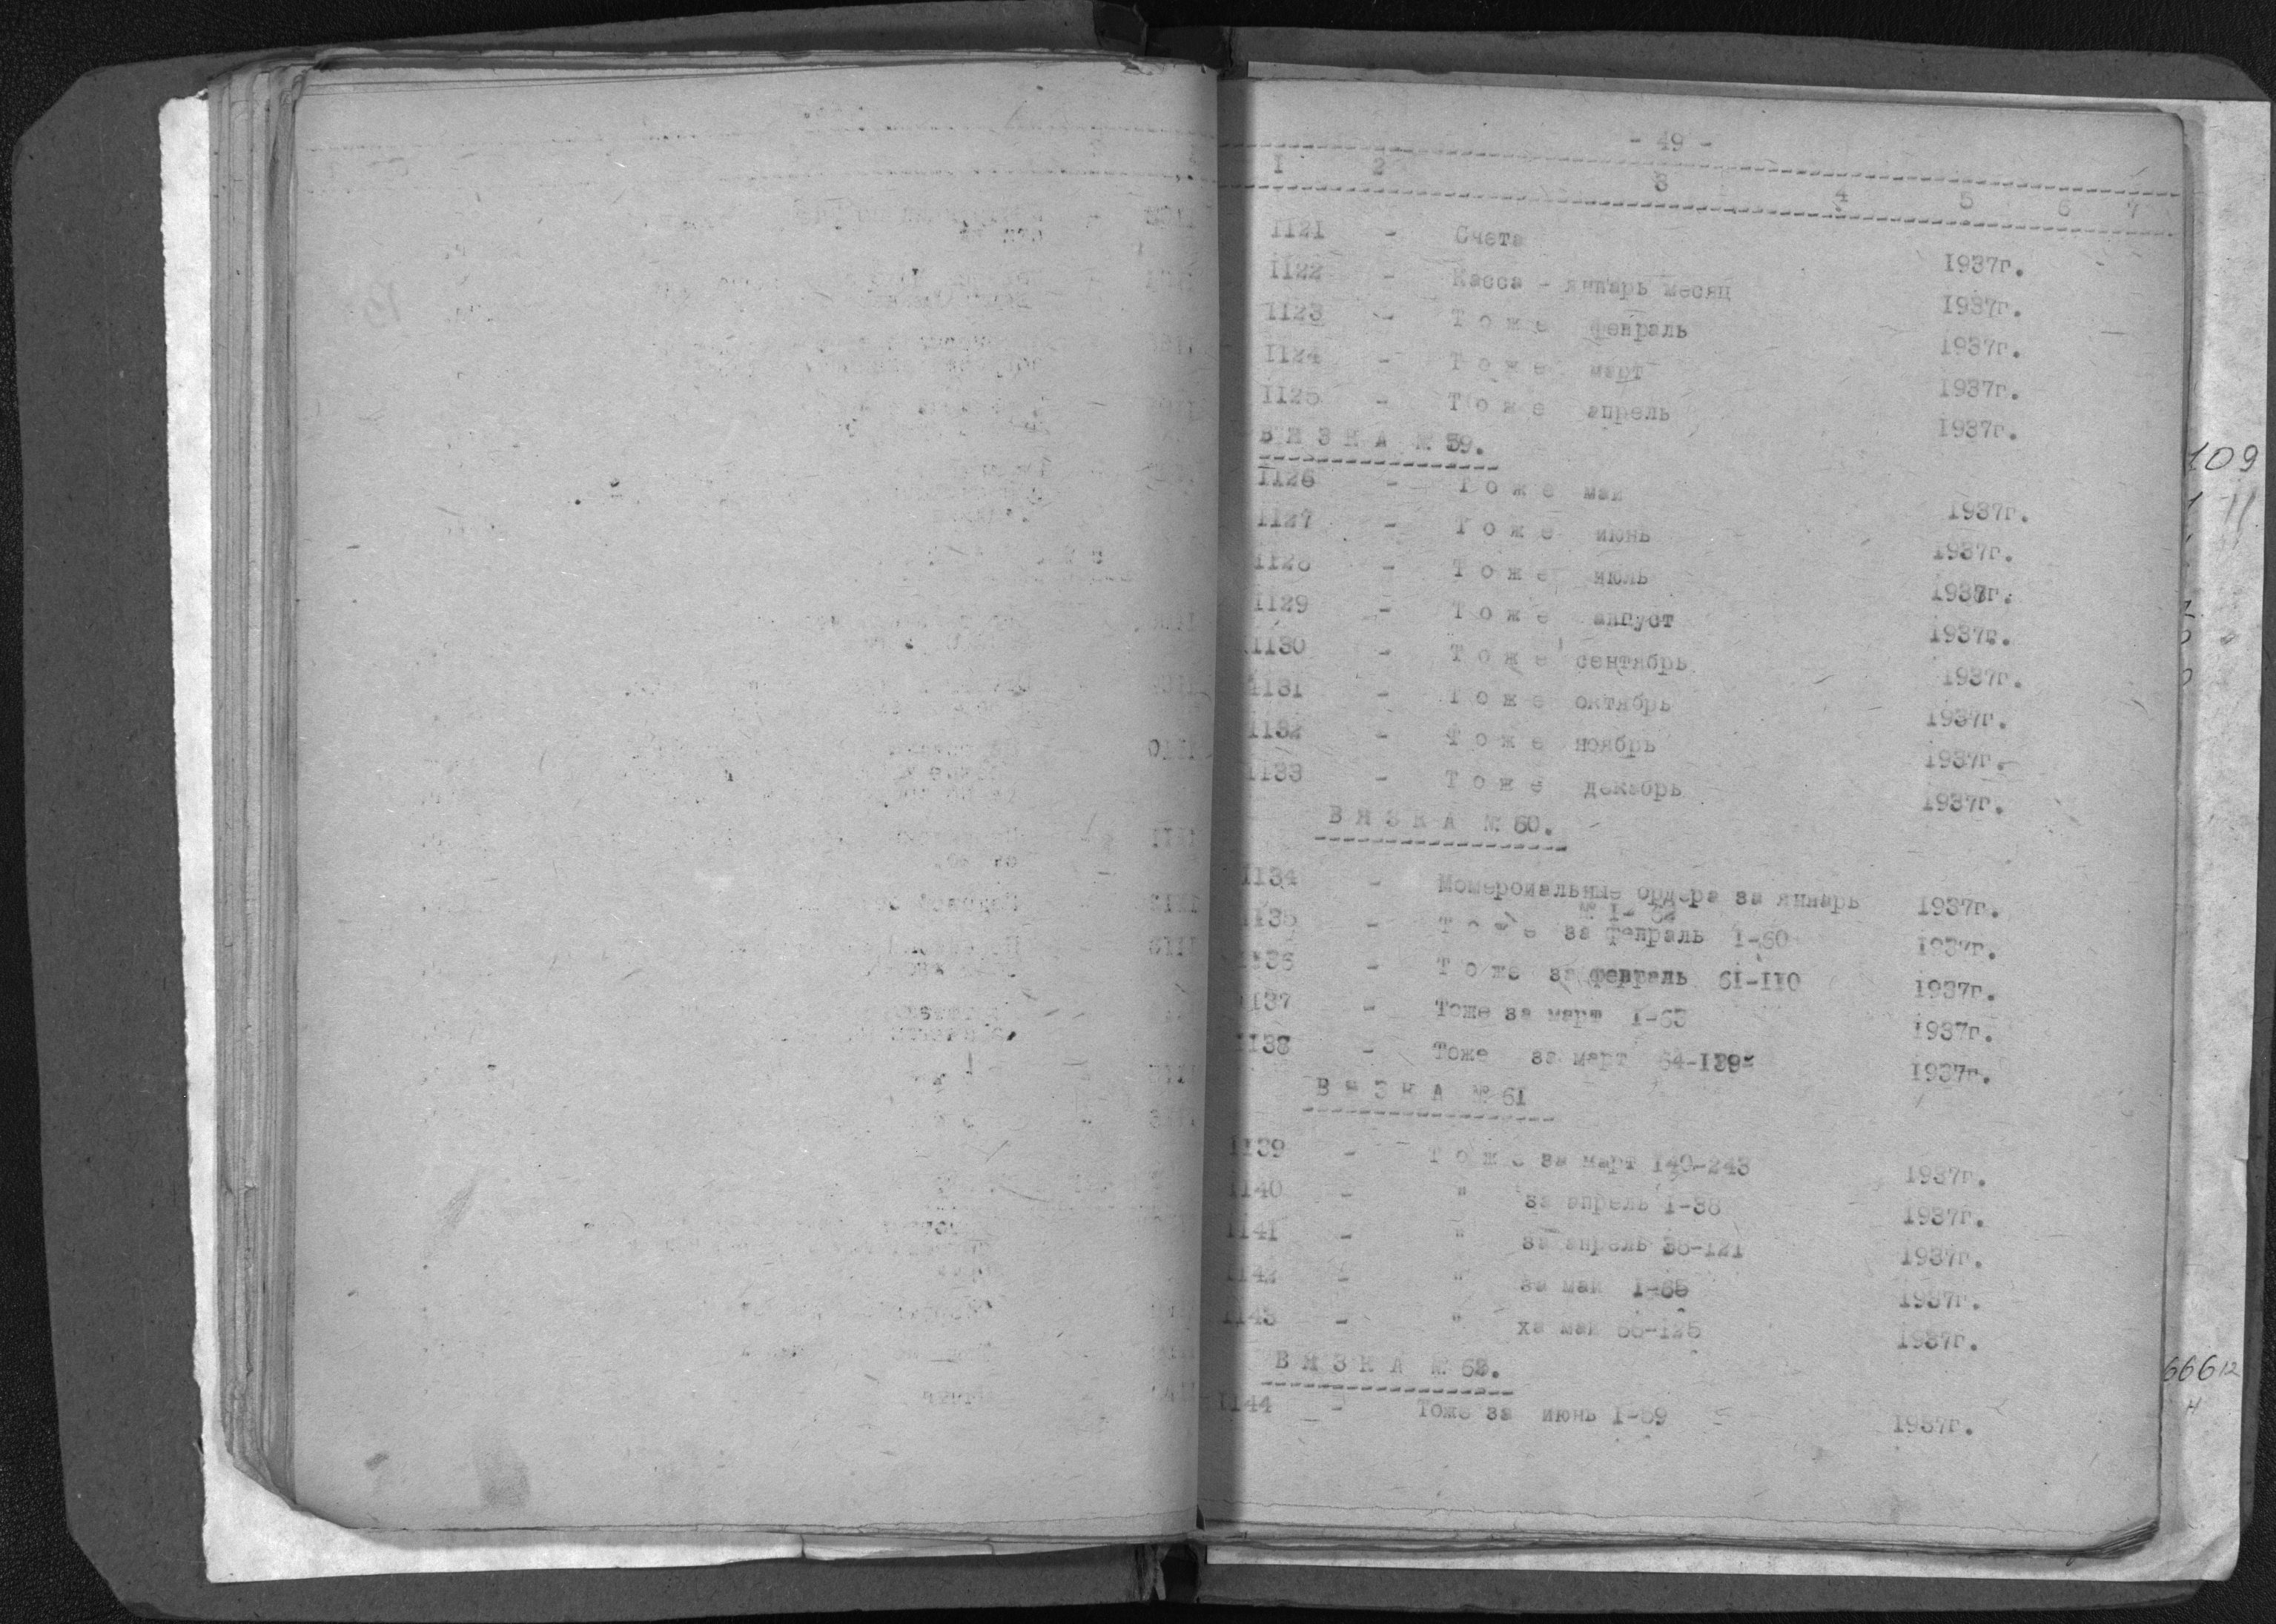 - 49 -
1 2 3 4 5 6 7
1121 - Счета 1937г.
1122 - Касса - январь месяц 1937г.
1123 - Т о ж е февраль 1937г.
1124 - Т о ж е март 1937г.
1125 - Т о ж е апрель 1937г.
В Я З К А № 59.
1126 - Т о ж е май 1937г.
1127 - Т о ж е июнь 1937г.
1128 - Т о ж е июль 1937г.
1129 - Т о ж е август 1937г.
1130 - Т о ж е сентябрь 1937г.
1131 - Т о ж е октябрь 1937г.
1132 - Т о ж е ноябрь 1937г.
1133 - Т о ж е декабрь 1937г.
В Я З К А № 60.
1134 - Момероиальные ордера за январь 1937г.
№ 1-
1135 - Т о ж е за февраль 1-60 1937г.
1136 - Т о же за февраль 61-110 1937г.
1137 - Тоже за март 1-63 1937г.
1138 - Тоже за март 64-139- 1937г.
В Я З К А № 61
1139 - Т о ж е за март 140-243 1937г.
1140 - " за апрель 1-38 1937г.
1141 - " за апрель 38-121 1937г.
1142 - " за май 1-65 1937г.
1143 - " ха май 66-125 1937г.
В Я З К А № 62.
1144 - Тоже за июнь 1-59 1937г.
109
11
666 12